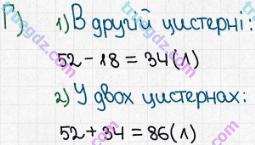 Г) 1) В другій цистерні:
52 - 18 = 34 (л)
2) У двох цистернах:
52 + 34 = 86 (л)